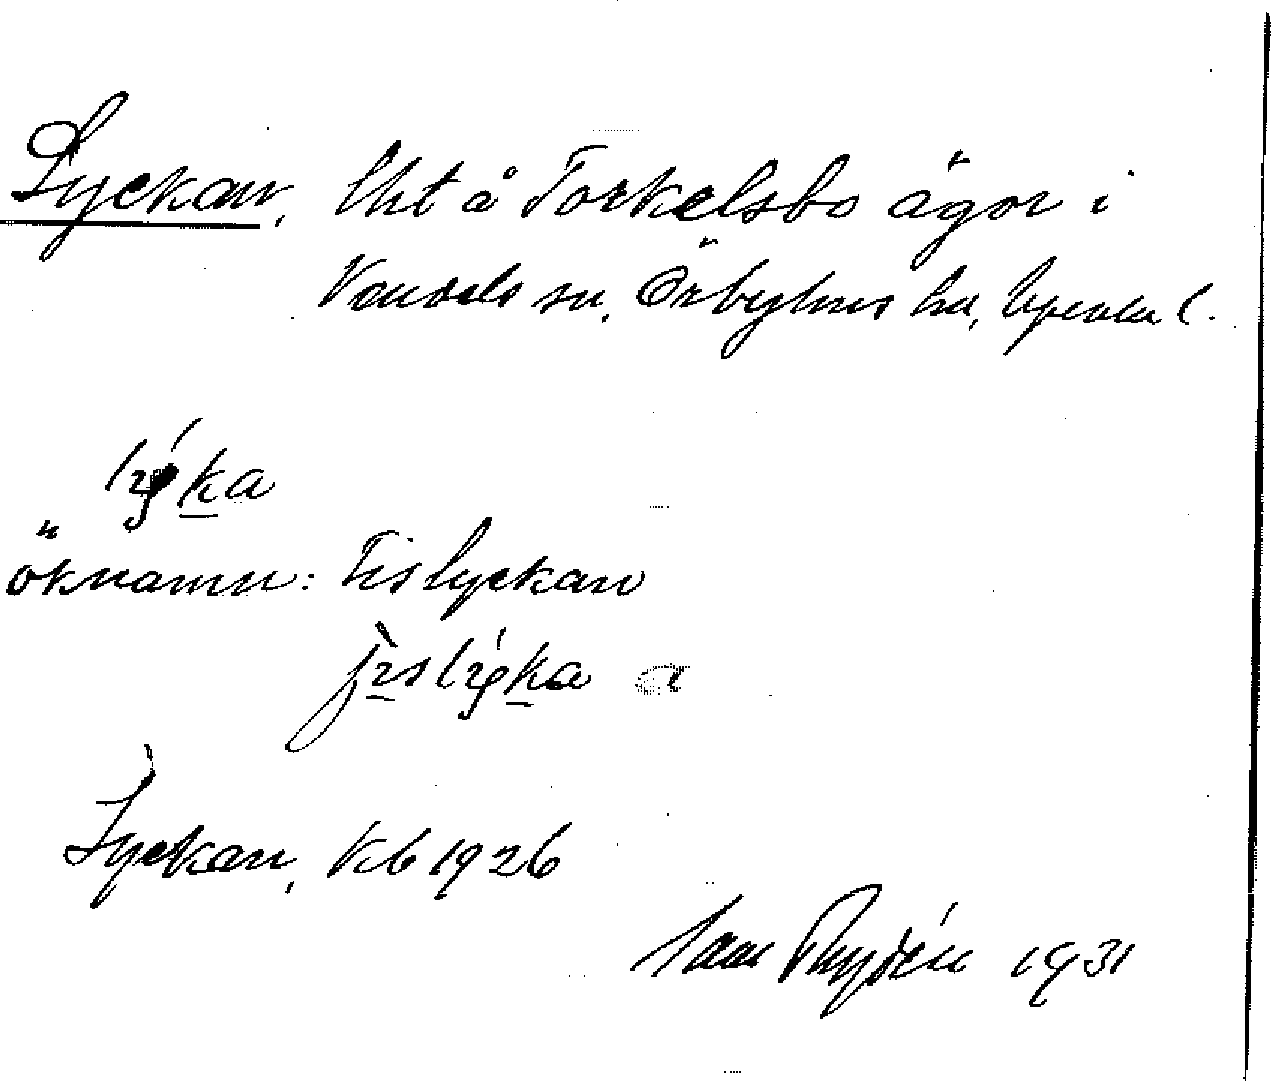 Lyckan, lht å Torkelsbo ägor i
Vendels sn, Örbyhus hd, Uppsala l.
öknamn: Fislyckan
Lyckan, Kb 1926
Sam Rydén 1931